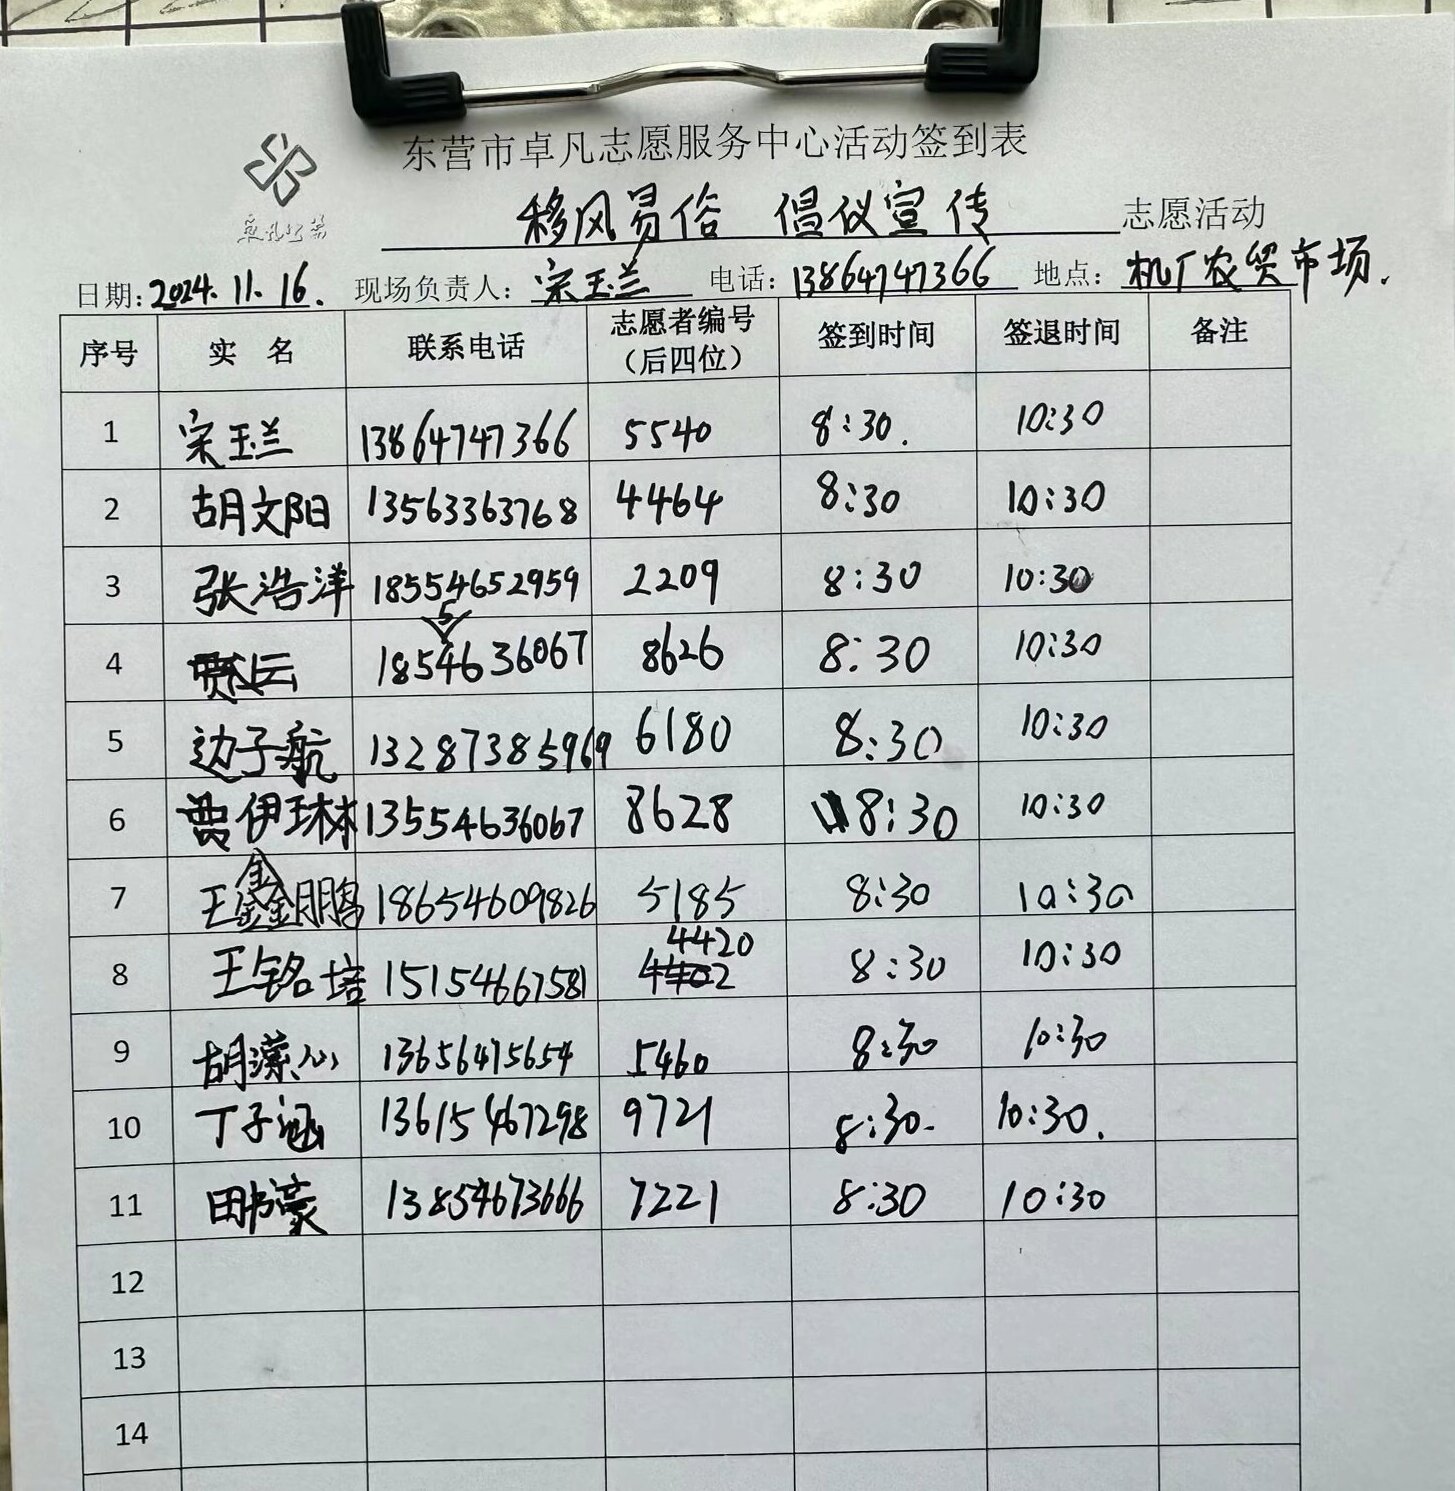 东营市卓凡志愿服务中心活动签到表
移风易俗 倡仪宣传 志愿活动
日期:2024.11.16. 现场负责人:宋玉兰 电话:13864747366 地点:机厂农贸市场.
序号 实 名 联系电话 志愿者编号(后四位) 签到时间 签退时间 备注
1 宋玉兰 13864747366 5540 8:30. 10:30
2 胡文阳 13563363768 4464 8:30 10:30
3 张浩洋 18554652959 2209 8:30 10:30
4 18554636067 8626 8:30 10:30
5 边子航 13287385969 6180 8:30 10:30
6 贾伊琳 13554636067 8628 8:30 10:30
7 王鑫鹏 18654609826 5185 8:30 10:30
8 王铭培 15154667581 4420 8:30 10:30
9 胡 13656475654 5460 8:30 10:30
10 丁子涵 13615467298 9721 8:30. 10:30.
11 田 13854673666 7221 8:30 10:30
12
13
14